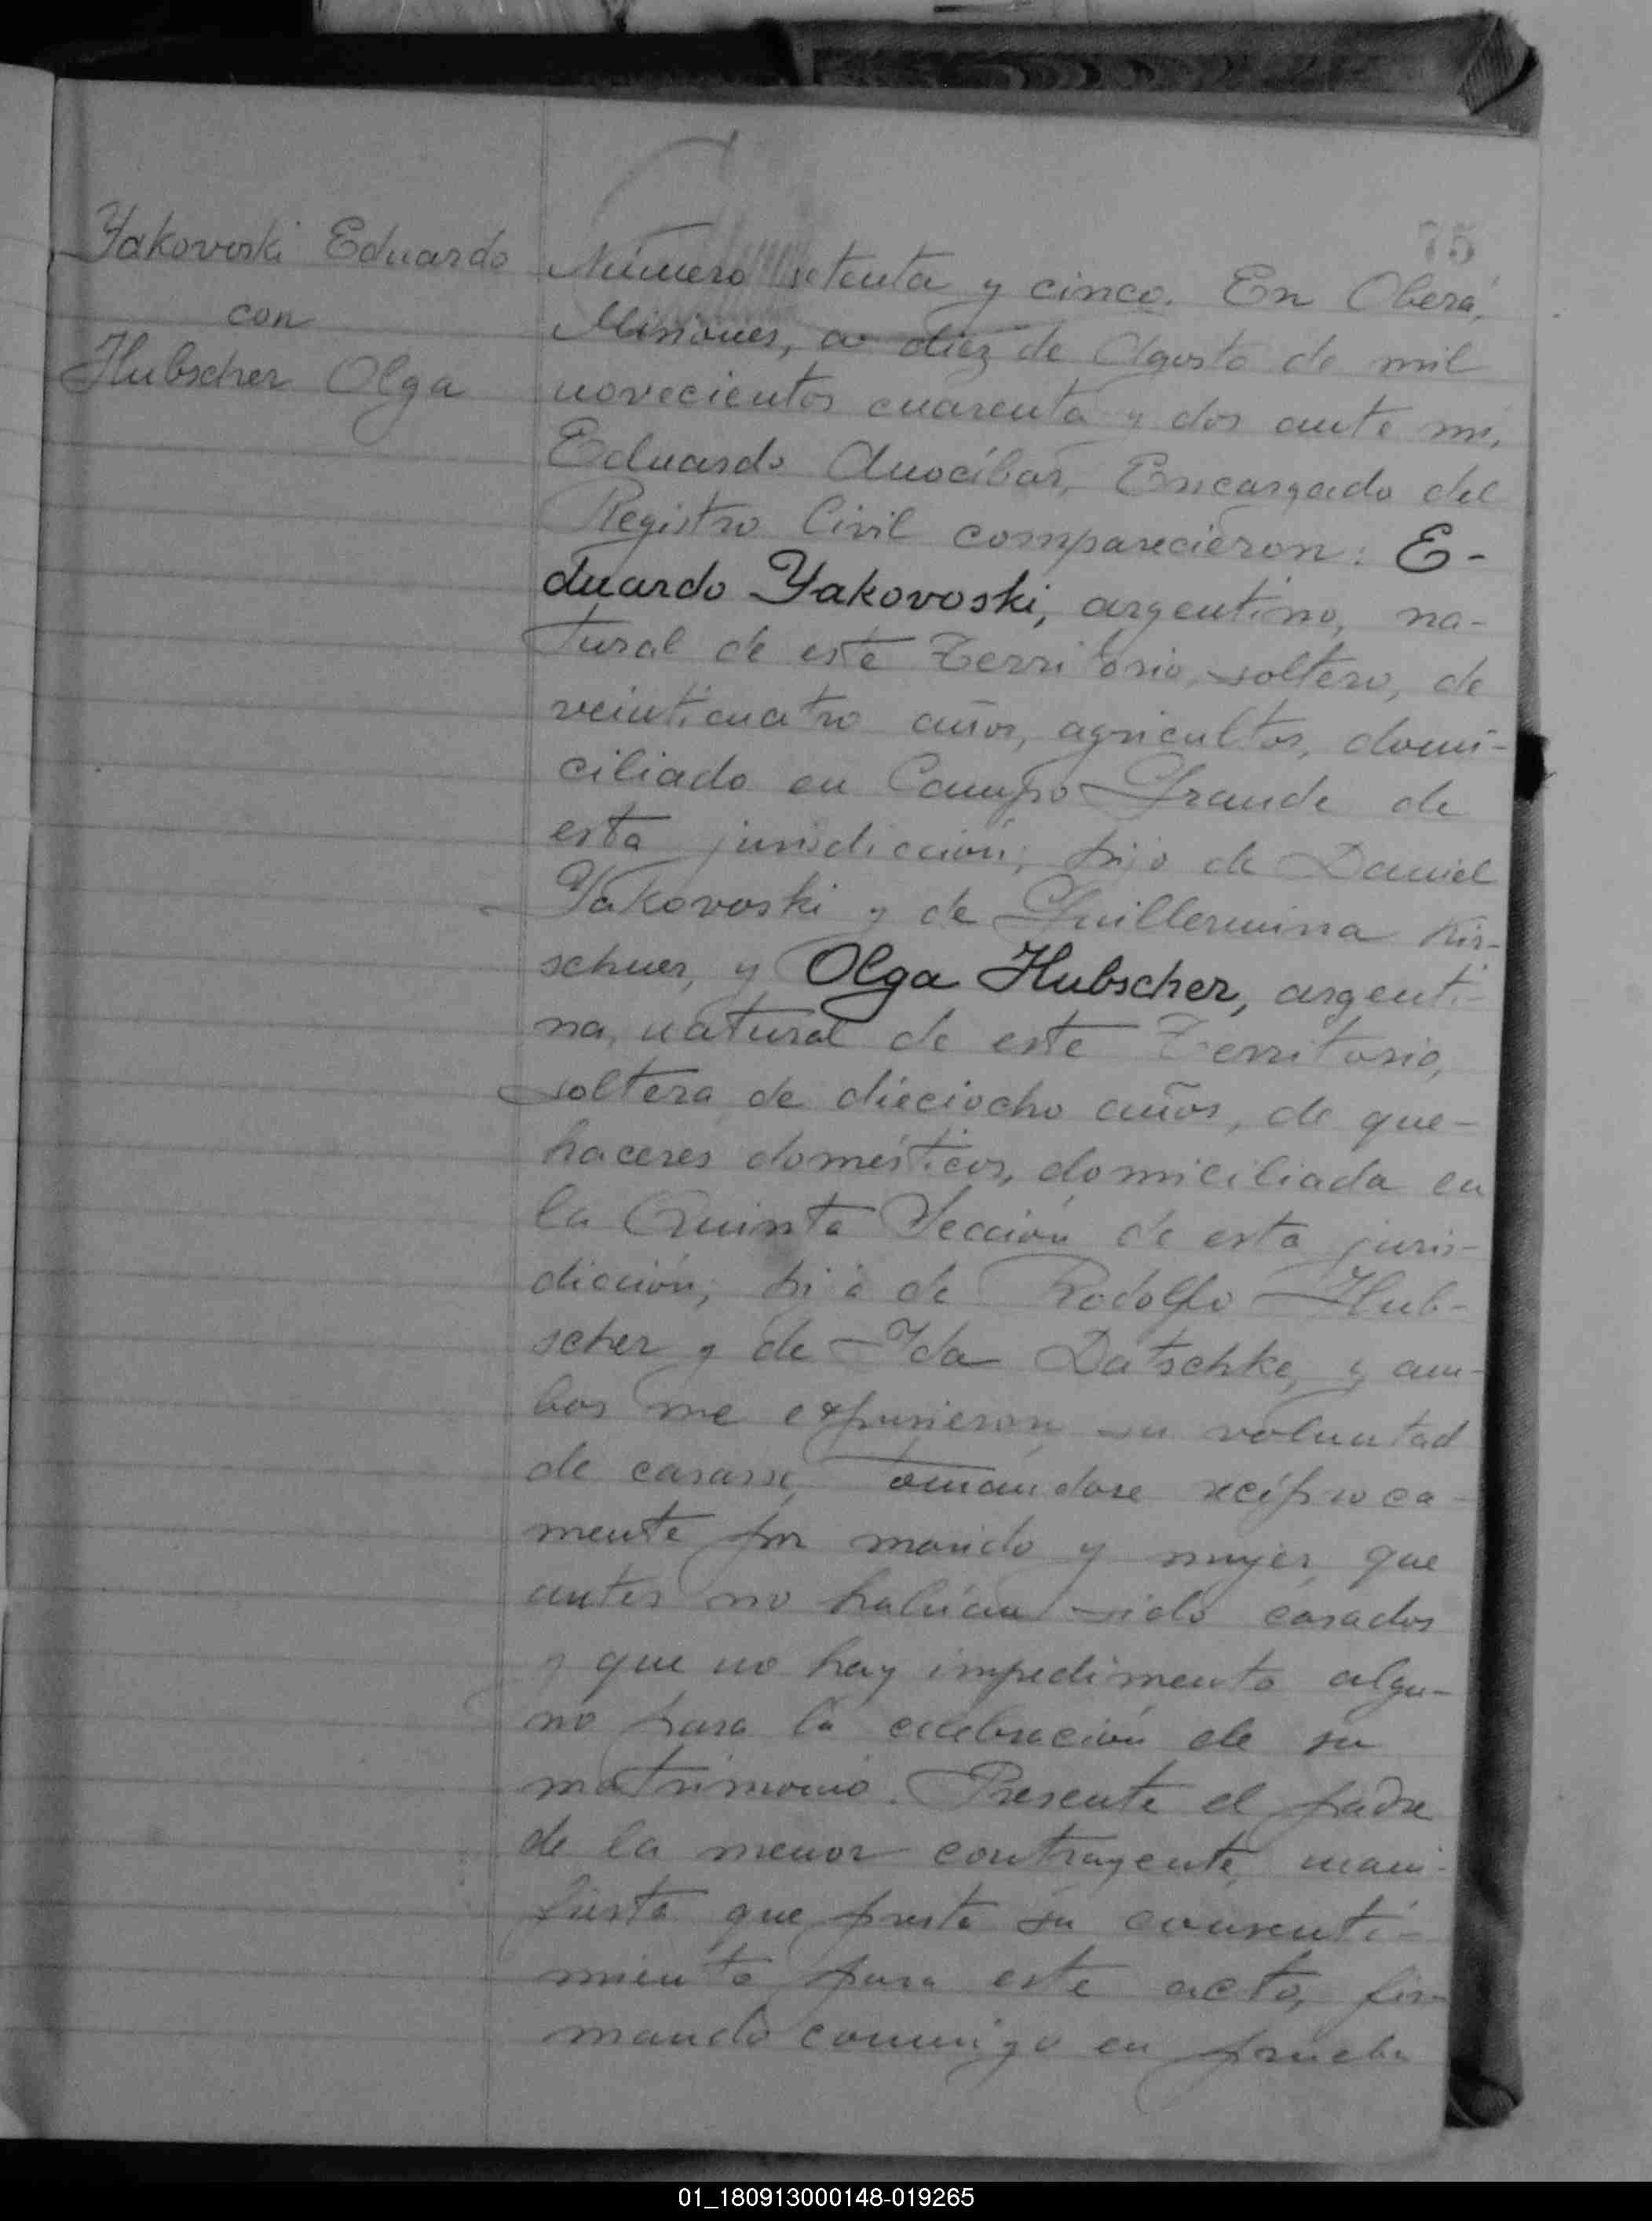 75
Yakovoski Eduardo
con
Hubscher Olga
Número setenta y cinco. En Oberá,
Misiones, a diez de Agosto de mil
novecientos cuarenta y dos ante mí,
Eduardo Anocíbar, Encargado del
Registro Civil comparecieron: E-
duardo Yakovoski, argentino, na-
tural de este Territorio, soltero, de
veinticuatro años, agricultor, domi-
ciliado en Campo Grande de
esta jurisdicción; hijo de Daniel
Yakovoski y de Guillermina Kir-
schner, y Olga Hubscher, argenti-
na, natural de este Territorio,
soltera de dieciocho años, de que-
haceres domésticos, domiciliada en
la Quinta Sección de esta juris-
dicción; hija de Rodolfo Hub-
scher y de Ida Datschke, y am-
bos me expusieron su voluntad
de casarse, tomándose recíproca-
mente por marido y mujer, que
antes no habían sido casados
y que no hay impedimento algu-
no para la celebración de su
matrimonio. Presente el padre
de la menor contrayente, mani-
fiesta que presta su consenti-
miento para este acto, fir-
mando conmigo en prueba
01_180913000148-019265